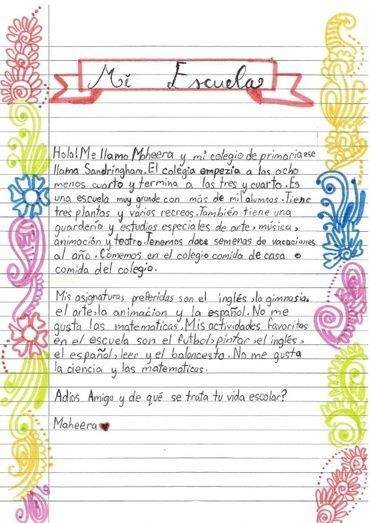 Mi Escuela
Hola! Me llamo Maheera y mi colegio de primaria ese
llama Sandringham. El colegio empezia a las ocho
menos cuarto y termina a las tres y cuarto. Es
una escuela muy grande con más de mil alumnos. Tiene
tres plantas y varios recreos. También tiene una
guardería y estudios especiales de arte, música,
animación y teatro. Tenemos doce semanas de vacaciones
al año. Comemos en el colegio comida de casa o
comida del colegio.
Mis asignaturas preferidas son el inglés, la gimnasia,
el arte, la animacion y la español. No me
gusta las matematicas. Mis actividades favoritas
en el escuela son el futbol, pintar, el inglés,
el español, leer y el baloncesto. No me gusta
la ciencia y las matematicas.
Adios Amigo y de qué se trata tu vida escolar?
Maheera